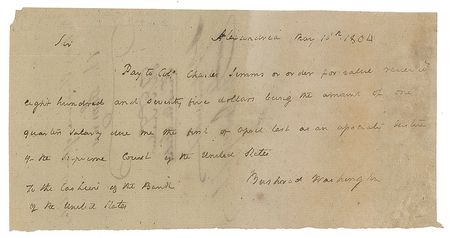 Alexandria May 10th 1804
Sir
Pay to Colo. Charles Simms or order for value received
eight hundred and seventy five dollars being the amount of one
quarters salary due me the first of april last as an associate Justice
of the Supreme Court of the United States
Bushrod Washington
To the Cashier of the Bank
of the United States